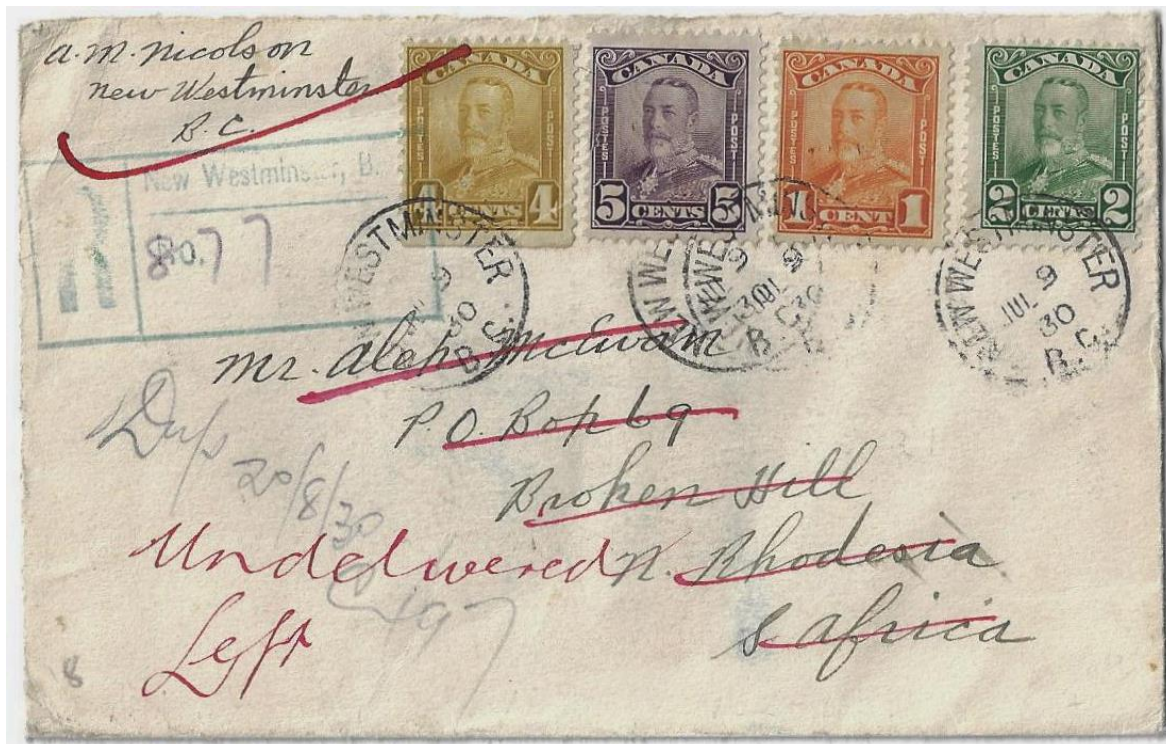 a.m. nicolson
new Westminster
B.C.
CANADA
POSTES POST
4 CENTS 4
CANADA
POSTES POST
5 CENTS 5
CANADA
POSTES POST
1 CENT 1
CANADA
POSTES POST
2 CENTS 2
New Westminster, B.
No. 877
NEW WESTMINSTER
JUL 9
30
B.C.
NEW WE
NEW WE
9
30
B.C.
NEW WESTMINSTER
JUL 9
30
B.C.
mr. Alex McEwan
P.O. Box 69
Broken Hill
N. Rhodesia
S. Africa
20/8/30
Undelivered
Left
497
8